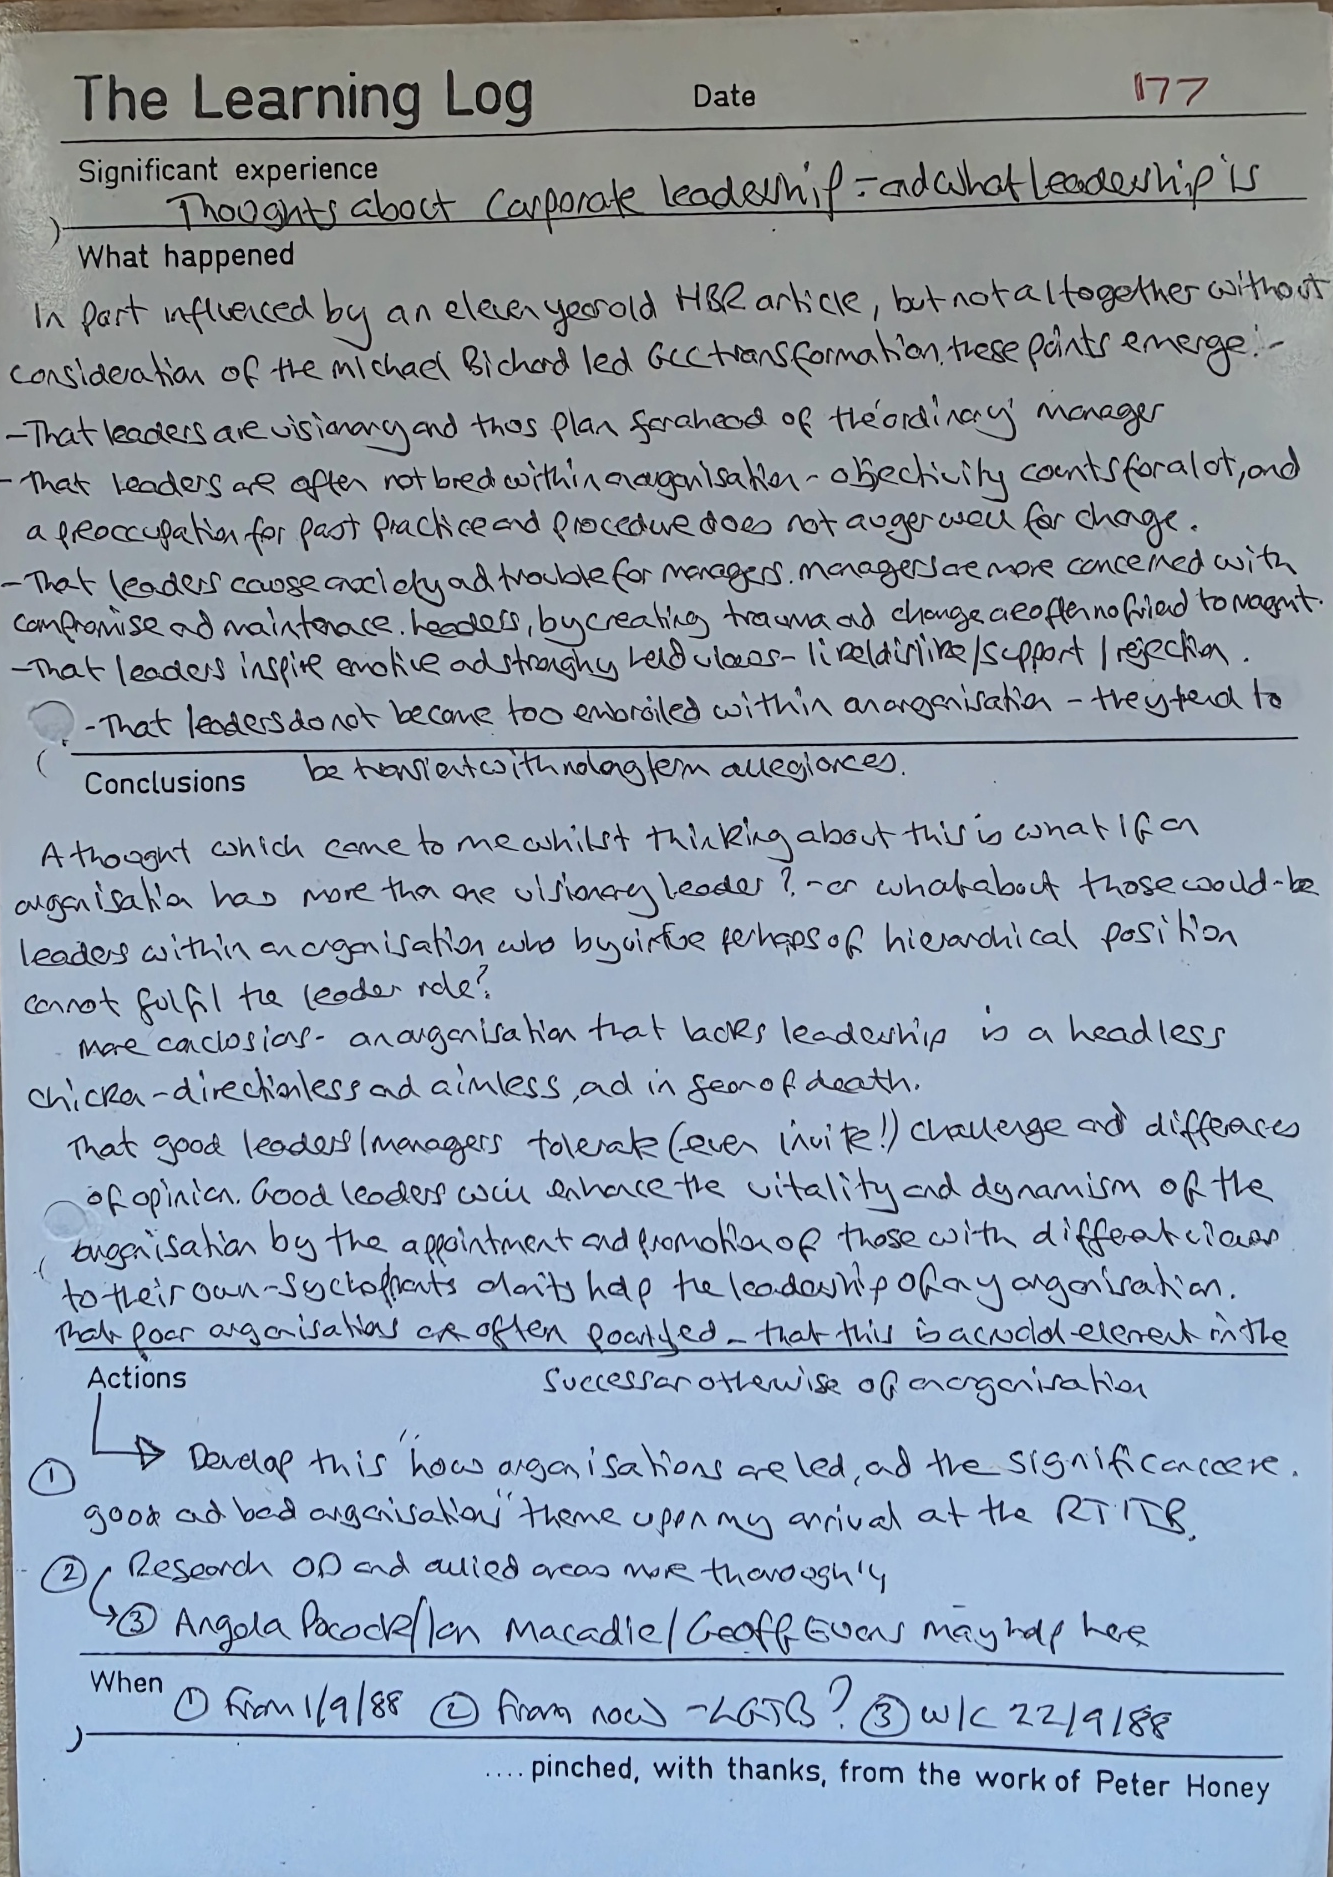 The Learning Log Date 177
Significant experience
Thoughts about Corporate leadership - and what leadership is
What happened
In part influenced by an eleven year old HBR article, but not altogether without
consideration of the Michael Bichard led GCC transformation, these points emerge:-
- That leaders are visionary and thus plan far ahead of the 'ordinary' manager
- That leaders are often not bred within an organisation - objectivity counts for a lot, and
a preoccupation for past practice and procedure does not auger well for change.
- That leaders cause anxiety and trouble for managers. Managers are more concerned with
compromise and maintenance. Leaders, by creating trauma and change are often no friend to magmt.
- That leaders inspire emotive and strongly held views - like/dislike/support/rejection.
- That leaders do not become too embroiled within an organisation - they tend to
be transient with no long term allegiances.
Conclusions
A thought which came to me whilst thinking about this is what if an
organisation has more than one visionary leader? - or what about those would-be
leaders within an organisation who by virtue perhaps of hierarchical position
cannot fulfil the leader role?
More conclusions - an organisation that lacks leadership is a headless
chicken - directionless and aimless, and in fear of death.
That good leaders/managers tolerate (even invite!) challenge and differences
of opinion. Good leaders will enhance the vitality and dynamism of the
organisation by the appointment and promotion of those with different views
to their own - sychophants don't help the leadership of any organisation.
That poor organisations are often poorly led - that this is a crucial element in the
success or otherwise of an organisation
Actions
① Develop this "how organisations are led, and the significance re.
good and bad organisations" theme upon my arrival at the RTITB.
② Research OD and allied areas more thoroughly
③ Angela Pocock/Ian Macadie/Geoff Evans may help here
When ① From 1/9/88 ② From now - LGTB? ③ W/C 22/9/88
.... pinched, with thanks, from the work of Peter Honey